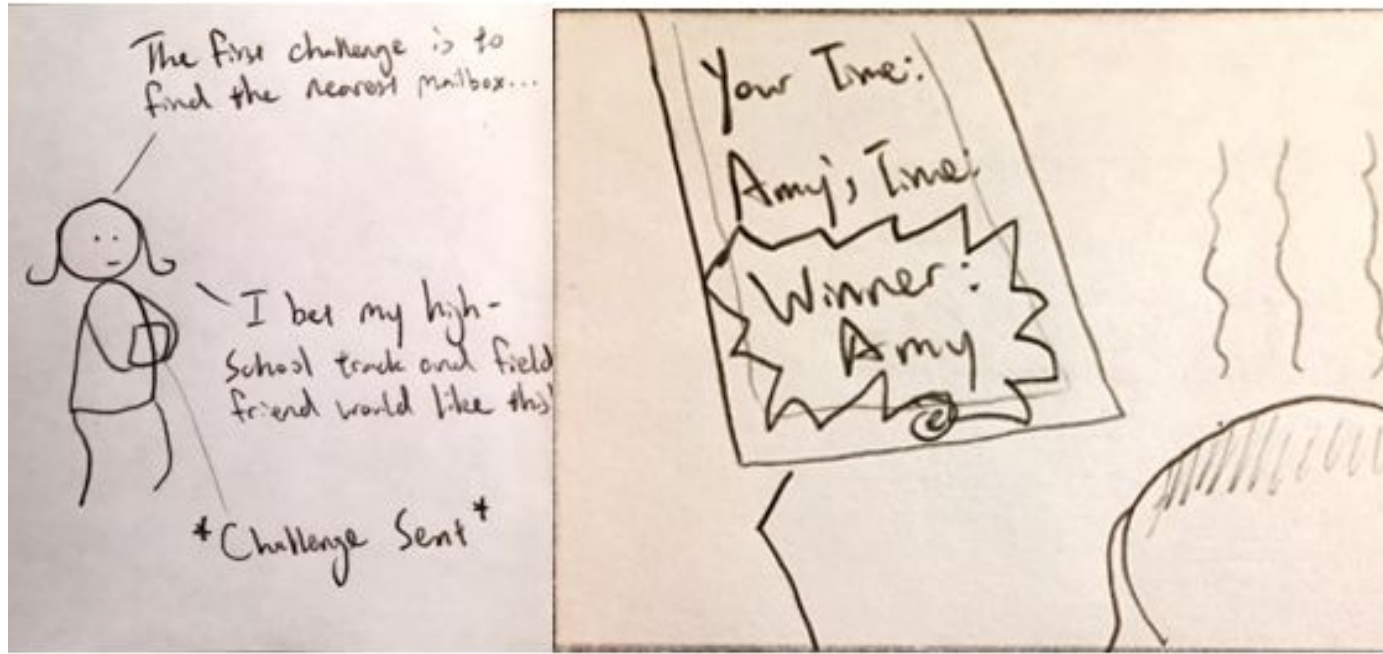 The first challenge is to
find the nearest mailbox...
I bet my high-
school track and field
friend would like this!
*Challenge Sent*
Your Time:
Amy's Time:
Winner:
Amy